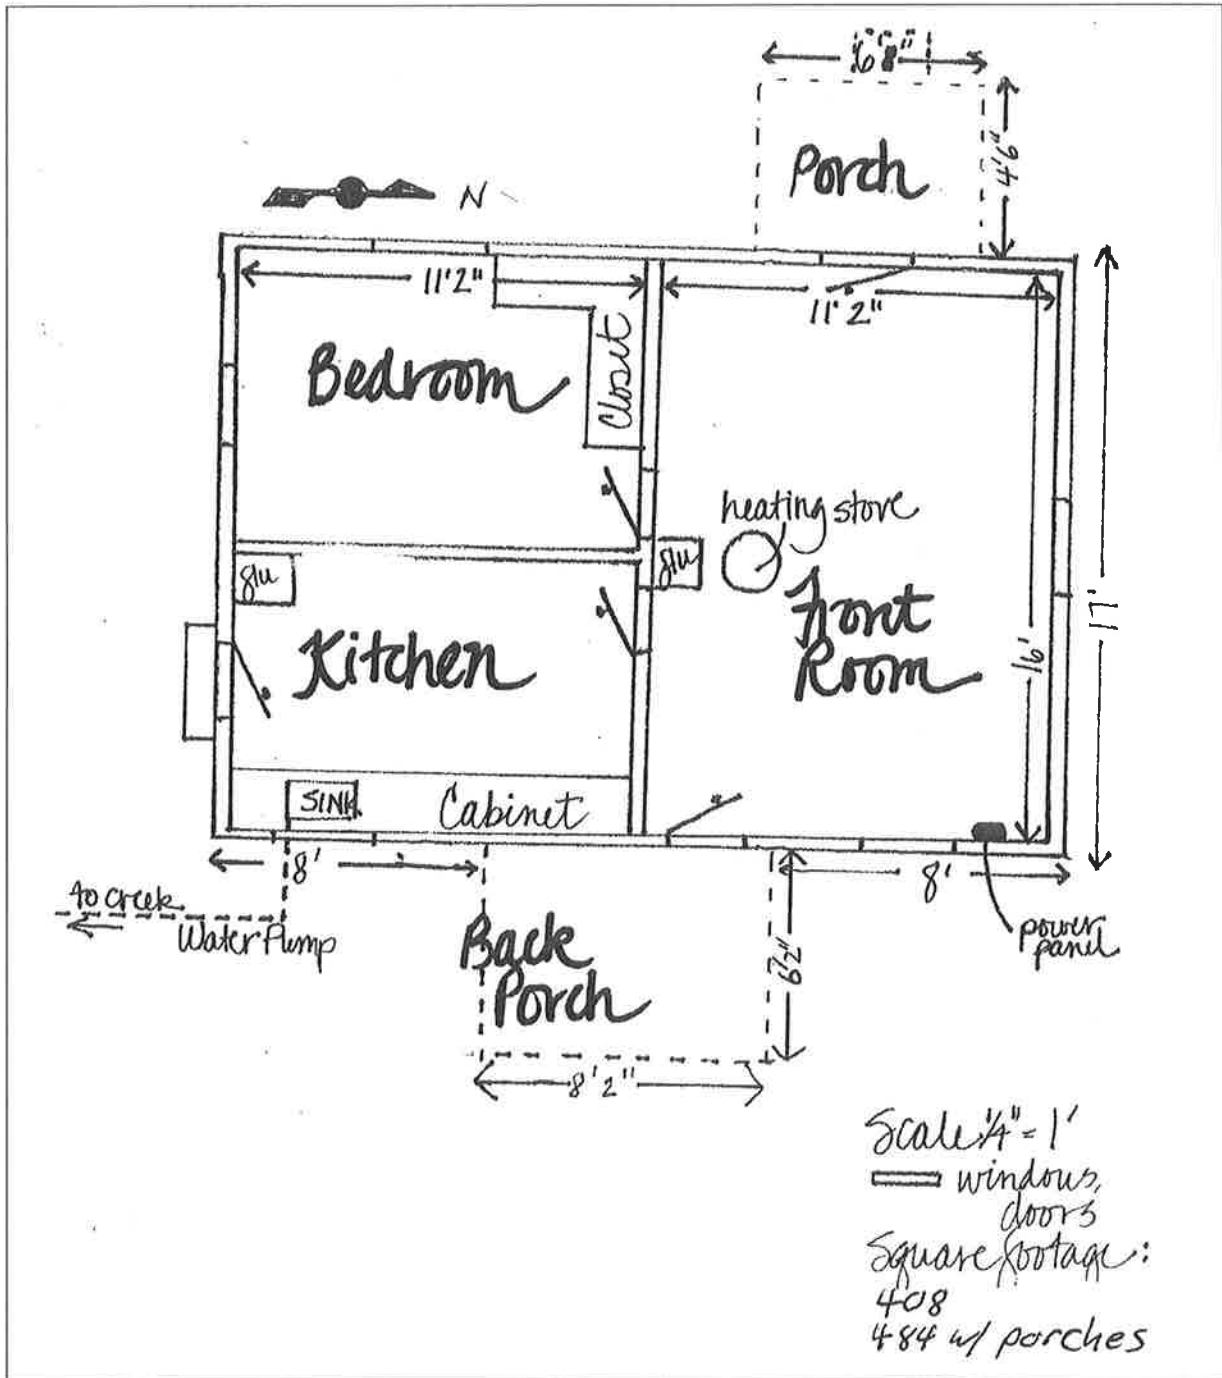 6'8"
Porch
4'6"
N
11'2"
11'2"
Bedroom
Closit
heating stove
flu
flu
Front
Room
Kitchen
16'
17'
SINK
Cabinet
8'
8'
to creek
Water Pump
Back
Porch
6'2"
power
panel
8'2"
Scale 1/4" = 1'
windows,
doors
Square footage:
408
484 w/ porches